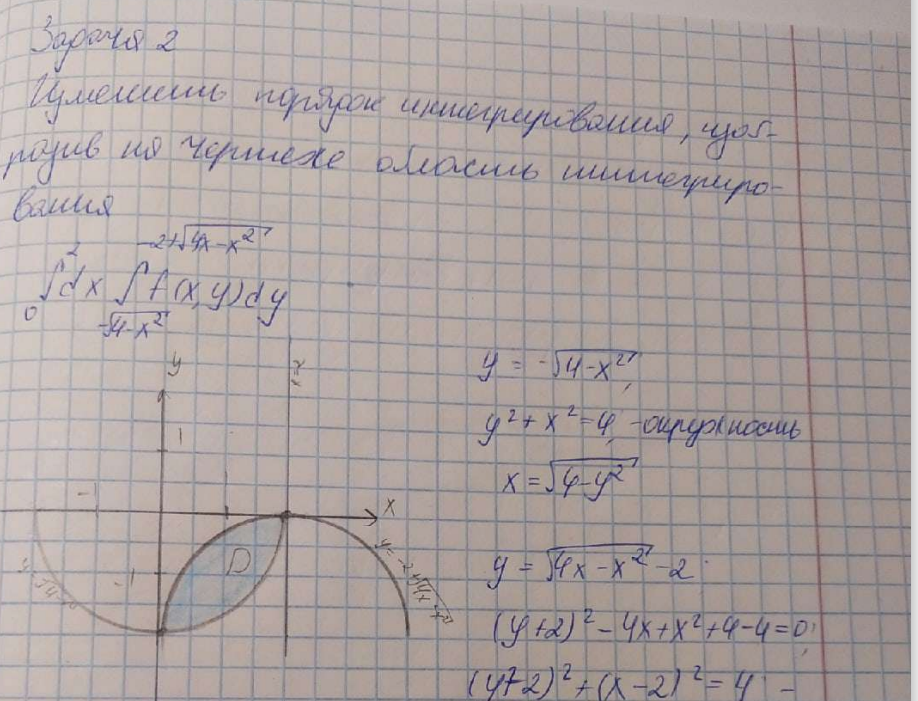 Задача 2
Изменить порядок интегрирования, изоб-
разив на чертеже область интегриро-
вания
∫₀² dx ∫_{-√(4-x²)}^{-2+√(4x-x²)} f(x,y)dy
y = -√(4-x²),
y² + x² = 4, -окружность
x = √(4-y²)
y = √(4x-x²) -2
(y+2)² - 4x + x² + 4 - 4 = 0,
(y+2)² + (x-2)² = 4 -
y
x=2
1
-1
x
D
-1
y = -2+√(4x-x²)